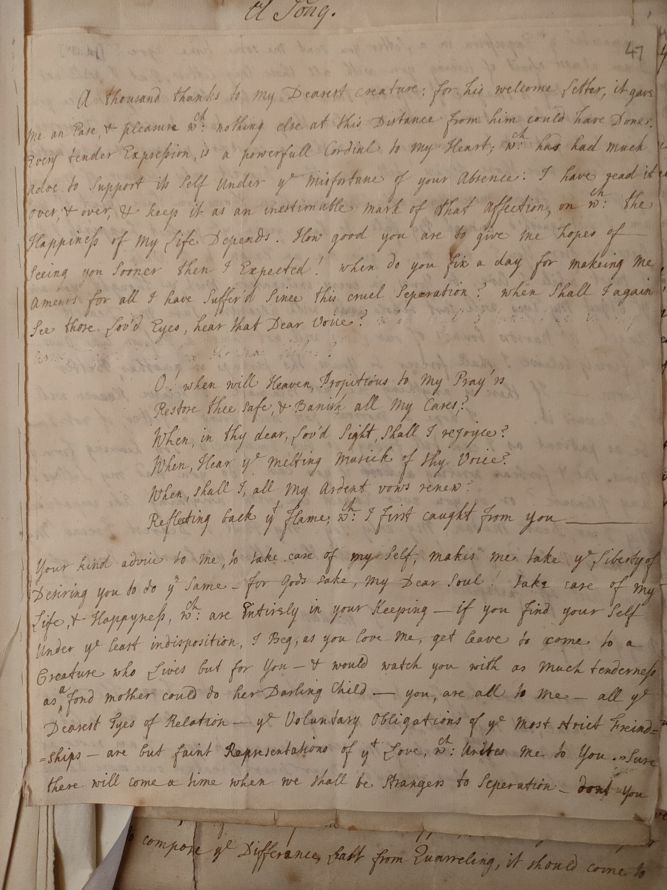 A Song.
47
A thousand thanks to my Dearest creature: for his welcome Letter, it gave
me an Ease, & pleasure wch: nothing else at this Distance from him could have Done.
Every tender Expression, is a powerfull Cordial to my Heart; wch: has had much
adoe to Support its Self Under ye misfortune of your Absence: I have read it
over, & over, & keep it as an inestimable mark of that affection, on wch: the
Happiness of My Life Depends. How good you are to give me hopes of
seeing you Sooner then I Expected! when do you fix a day for makeing me
Amends for all I have Suffer'd Since this cruel Seperation? when Shall I again
See those Lov'd Eyes, hear that Dear Voice?
O! when will Heaven, Propitious to My Pray'rs
Restore thee Safe, & Banish all My Cares?
When, in thy dear, Lov'd Sight, Shall I rejoyce?
When, Hear ye melting Musick of thy Voice?
When, Shall I, all My Ardent vows renew?
Reflecting back yt flame, wch: I first caught from you
Your kind advice to me, to take care of my Self, makes me take ye Liberty of
Desiring you to do ye Same – for Gods sake, My Dear Soul! Take care of My
Life, & Happyness, wch: are Entirely in your Keeping – if you find your Self
Under ye least indisposition, I Beg, as you love Me, get leave to come to a
Creature who Lives but for You – & would watch you with as Much tenderness
as a fond mother could do her Darling Child – you, are all to me – all ye
Dearest Tyes of Relation – ye Voluntary Obligations of ye Most Strict Freind=
=ships – are but faint Representations of yt Love, wch: Unites Me to You. Sure
there will come a time when we Shall be Strangers to Seperation – dont You
to compose ye Differance, from Quarreling, it should come to